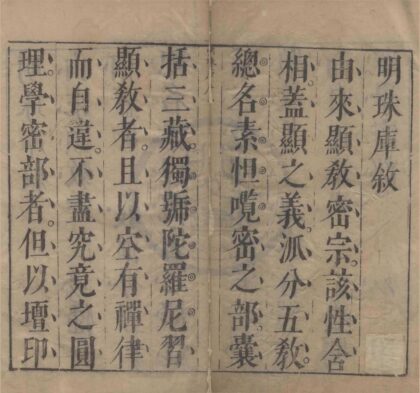 明珠庫敘
由來顯教密宗該性含
相蓋顯之義派分五教
總名素怛囕密之部囊
括三藏獨號陀羅尼習
顯教者且以空有禪律
而自違不盡究竟之圓
理學密部者但以壇印